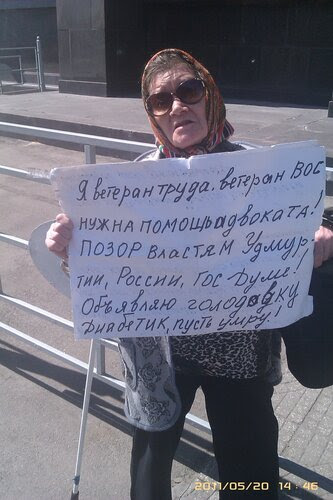 Я ветеран труда, ветеран ВОС
НУЖНА ПОМОЩЬ АДВОКАТА!
ПОЗОР ВЛАСТЯМ УДМУР-
ТИИ, РОССИИ, ГОС ДУМЕ!
Объявляю голодовку
Диабетик, пусть умру!
2011/05/20 14:46